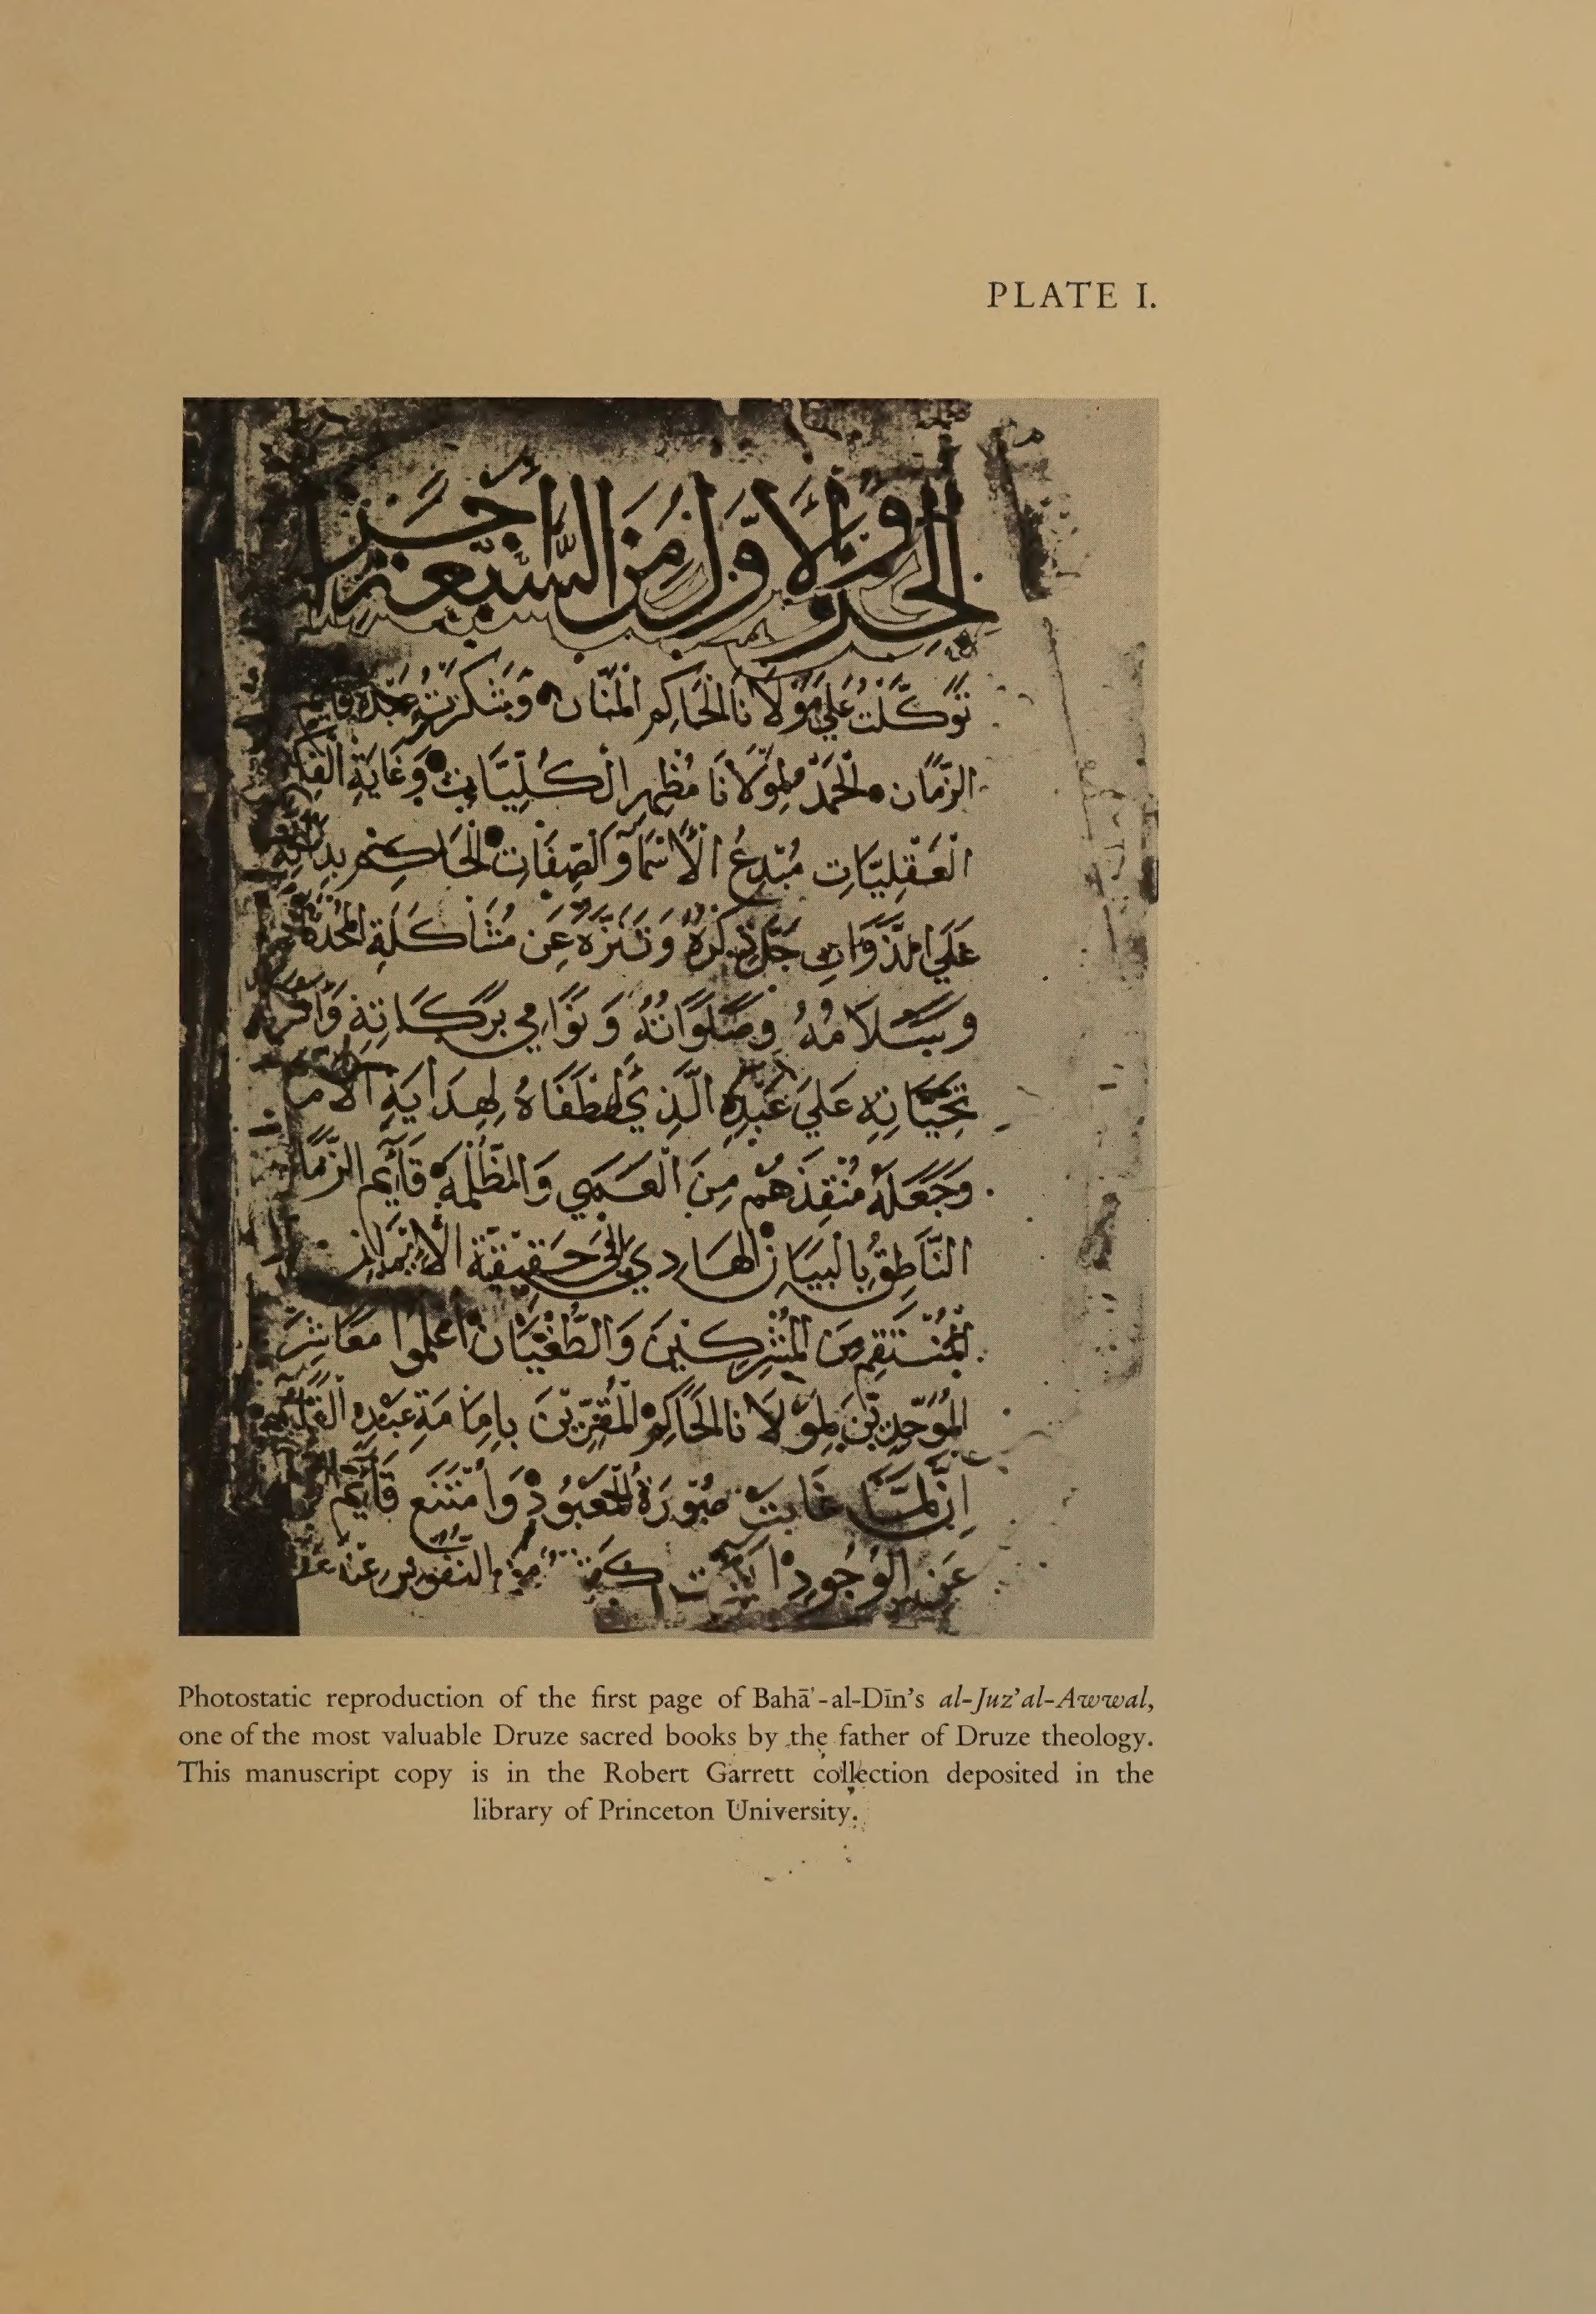 PLATE I.
الجزو الاول من السبعة أجزا
توكّلت علي مولانا الحاكم المنّان وشكرت عبده قايم
الزمان الحمد لمولانا مظهر الكليّات وغاية
العقليّات مبدع الأسما والصفات الحاكم بذاته
علي الذوات جلّ ذكره وتنزه عن مشاكلة
وسلامه وصلواته ونوامي بركاته
تحياته علي عبده الذي اصطفاه لهداية الامم
وجعله منقذهم من العمي والمظلمة قايم الزمان
الناطق بالبيان الهادي الي حقيقة الايمان
المنتقم من المشركين والطغيان اعلموا معاشر
الموحدين لمولانا الحاكم المقرين بامامة عبده القايم
ان لمّا غابت صورة المعبود وامتنع قايم
عن الوجود
Photostatic reproduction of the first page of Bahā'-al-Dīn's al-Juz' al-Awwal,
one of the most valuable Druze sacred books by the father of Druze theology.
This manuscript copy is in the Robert Garrett collection deposited in the
library of Princeton University.